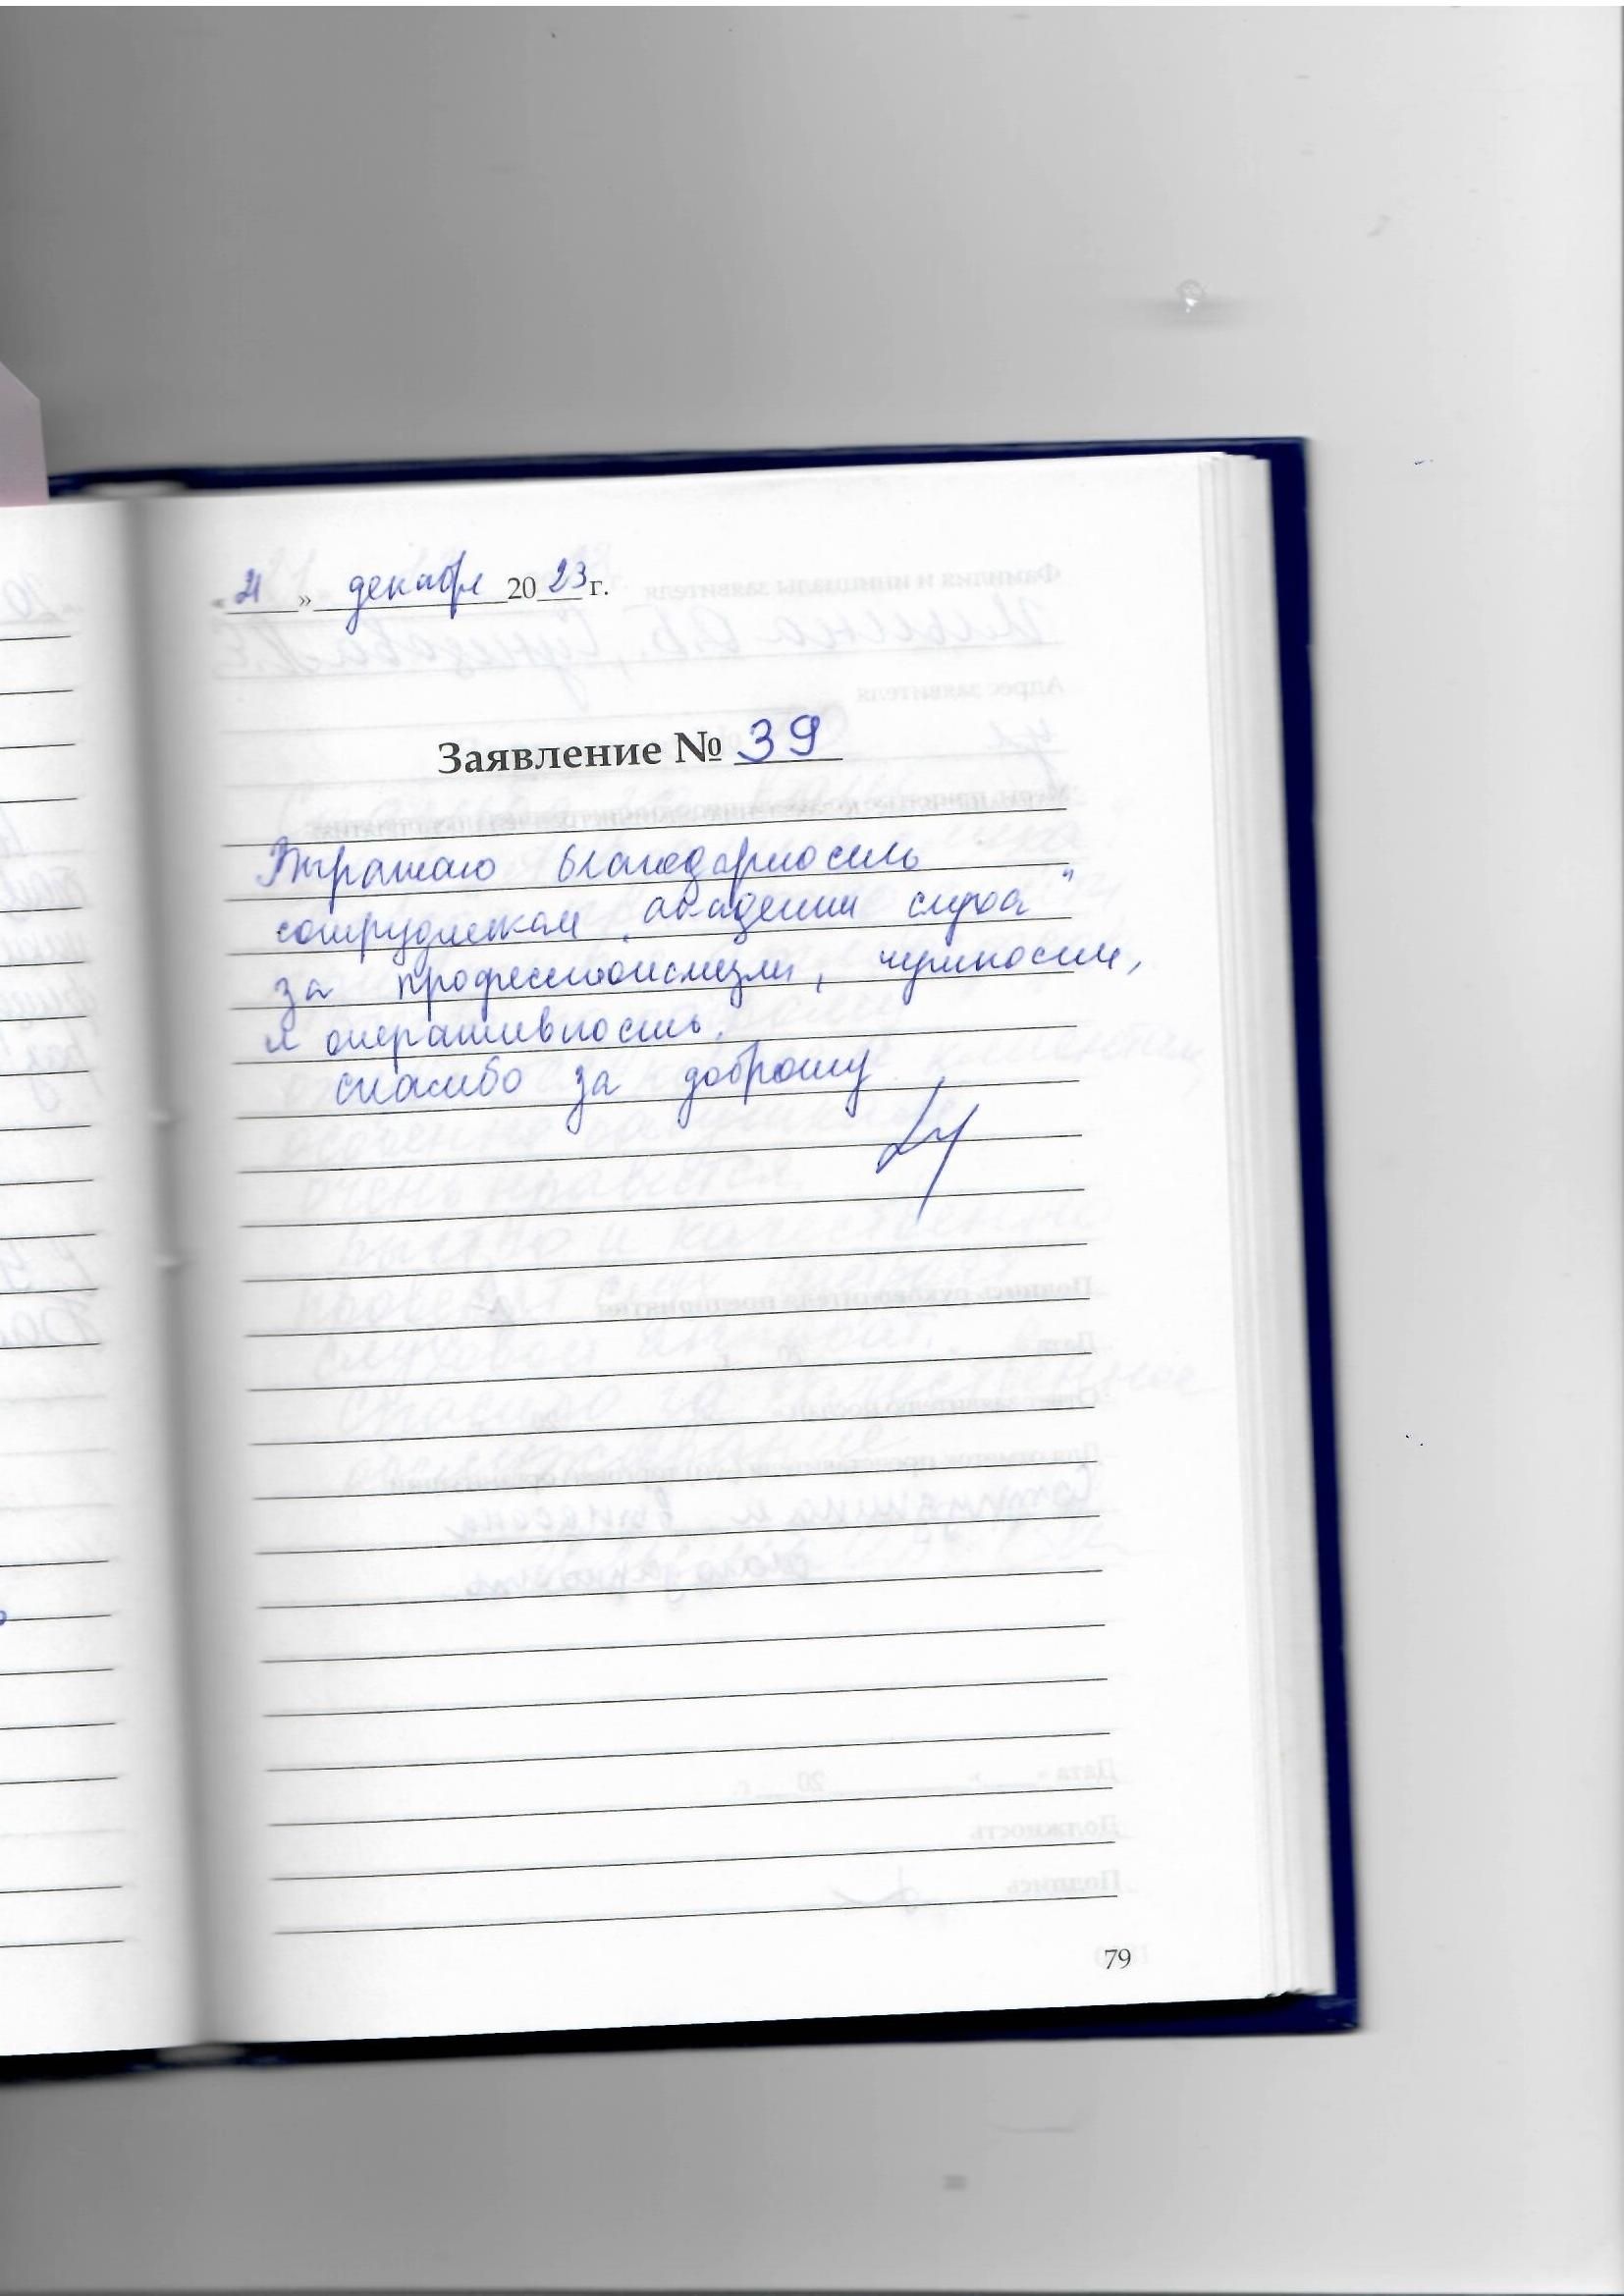 « 21 » декабря 2023 г.
Заявление № 39
Выражаю благодарность
сотрудникам "академии слуха"
за профессионализм, чуткость,
и оперативность.
спасибо за доброту
79